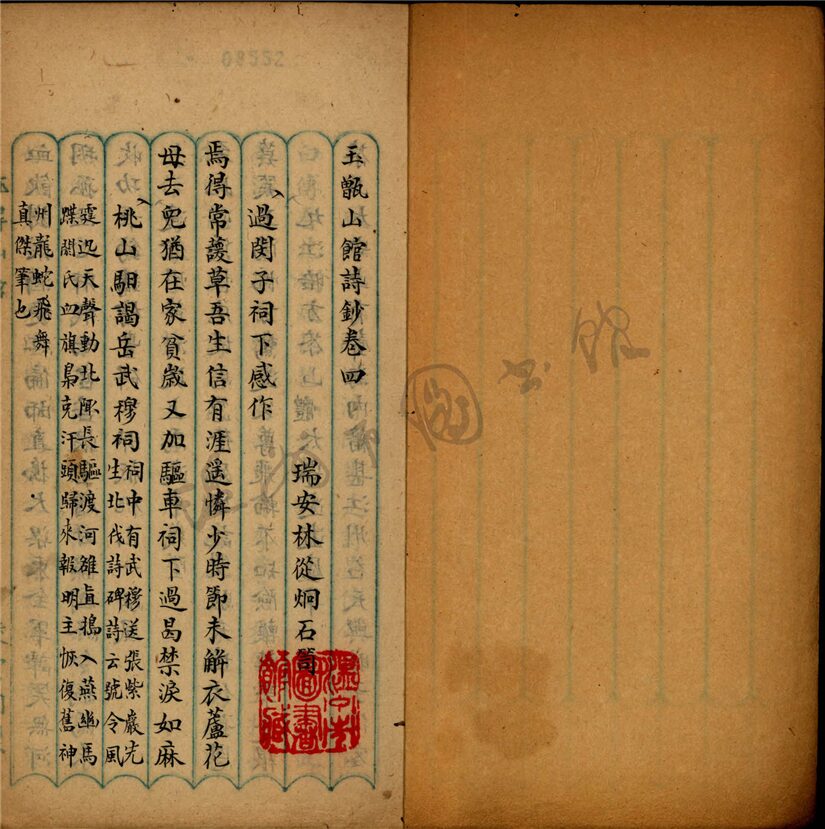 玉甑山館詩鈔卷四
瑞安林從炯石笥
過閔子祠下感作
焉得常護草吾生信有涯遥憐少時節未解衣蘆花
母去兒猶在家貧歲又加驅車祠下過曷禁淚如麻
桃山馹謁岳武穆祠
祠中有武穆送張紫巖先
生北伐詩碑詩云號令風
霆迅天聲動北陬長驅渡河雒直搗入燕幽馬
蹀閼氏血旗梟克汗頭歸來報明主恢復舊神
州龍蛇飛舞
真傑筆也
溫州市
圖書
館藏
08552